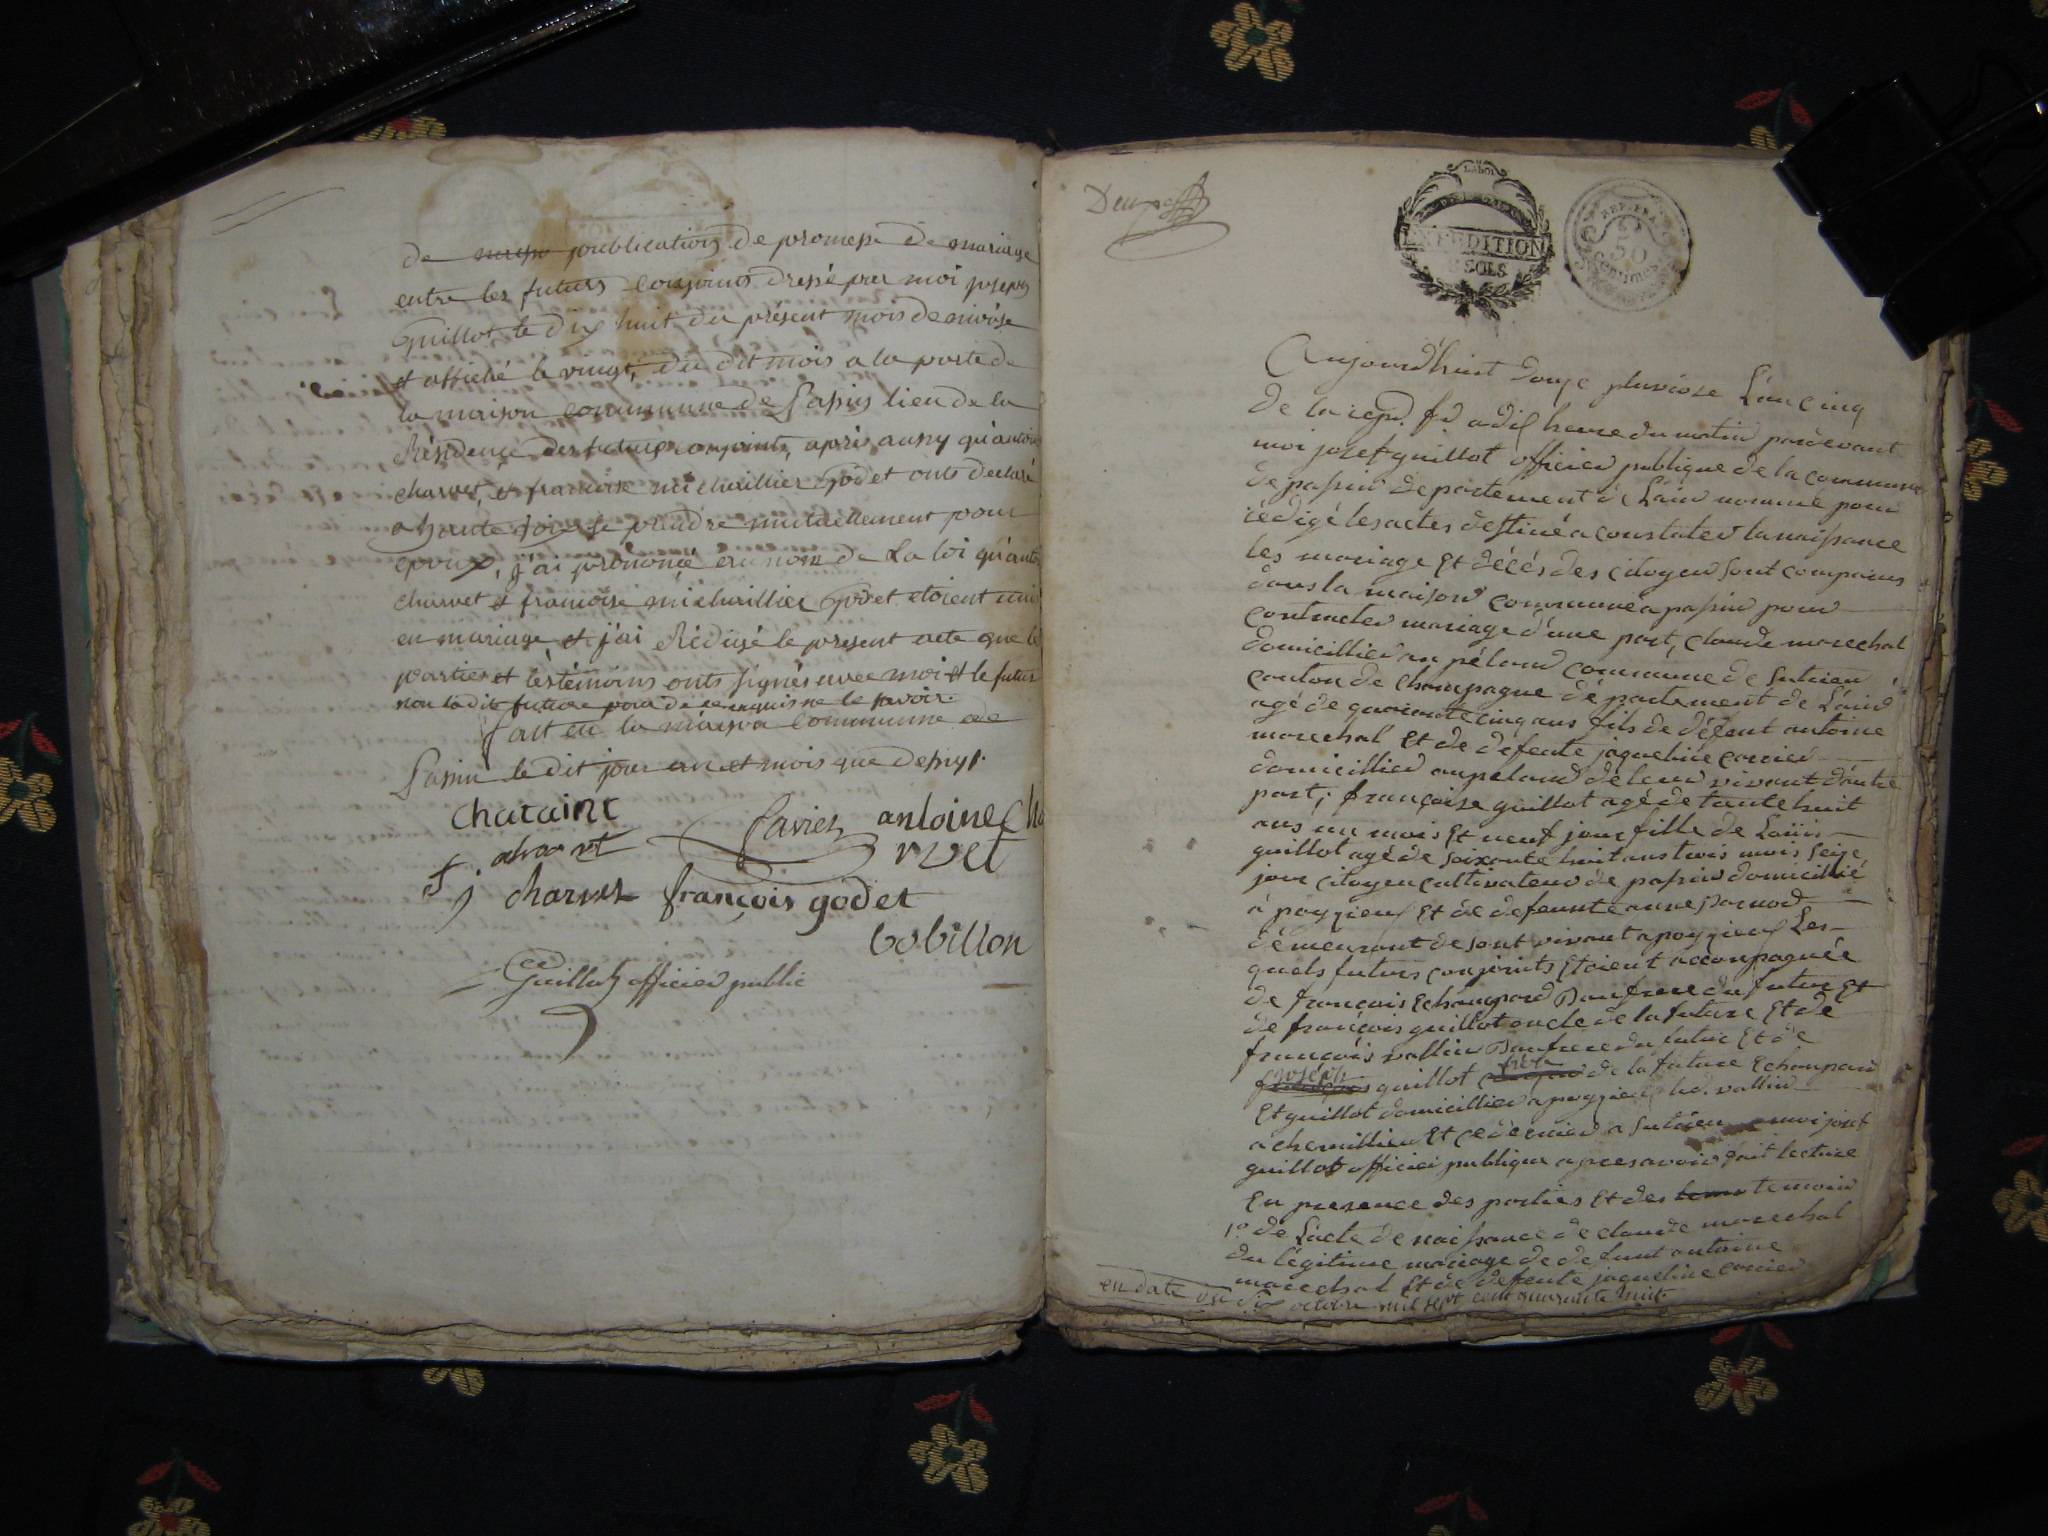 de publications de promesse de mariage
entre les futurs conjoints dressé par moi joseph
Guillot, le dix huit du présent mois de nivôse
et affiché le vingt, du dit mois a la porte de
la maison commune de Passin lieu de la
Résidence des futurs conjoints, après aussy qu'antoine
charvet, et francoise michaillier Godet onts declaré
a haute voix se prendre mutuellement pour
epoux, j'ai prononcé au nom de La loi qu'antoine
charvet et francoise michaillier Godet etoient unis
en mariage, et j'ai Rédigé le present acte que les
parties et les témoins onts signés avec moi et le futur
non la dite future pour de ce enquis ne le savoir.
fait en la maison commune de
Passin le dit jour an et mois que dessus.
chataint
Savier antoine Cha
rvet
charvet
j charvet françois godet
bobillon
Guillot officier public
Deux
LA LOI
EXPEDITION
SOLS
REP. FRA.
50
centimes
Aujourd'huit douze pluviose L'an cinq
de la rep. fr. a dix heure du matin pardevant
moi josef guillot officier publique de la commune
de passin departement de L'ain nommé pour
rédigé les actes destiné a constater la naissance
les mariage Et décés des citoyen sont comparus
dans la maison commune a passin pour
contracter mariage d'une part, claude marechal
domicillier au péland commune de Sutrieu
canton de champagne département de L'ain
agé de quarante cinq ans fils de défunt antoine
marechal Et de defente jaqueline carrier
domicillier au peland de leur vivant d'autre
part; françoise guillot agé de tante huit
ans un mois Et neuf jour fille de Loüis
guillot agé de soixante huit ans trois mois seize
jour citoyen cultivateur de passin domicillié
à poyzieux Et de defeunte anne
demeurant de sont vivant a poyzieux Les-
quels futurs conjoints Etoient accompagnée
de françois Echampard Baufrere du futur Et
de françois guillot oncle de la future Et de
françois vallin Baufrere du futur Et de
joseph guillot frere de la future Echampard
Et guillot domicillier a poyzieux led. vallin
à chemillieu Et ce dernier a Sutrieu moi josef
guillot officier publique apres avoir fait lecture
En presence des parties Et des temoin
1.° de L'acte de naissance de claude marechal
du légitime mariage de defunt antoine
marechal Et de defente jaqueline carrier
en date du dix octobre mil sept cent quarante huit